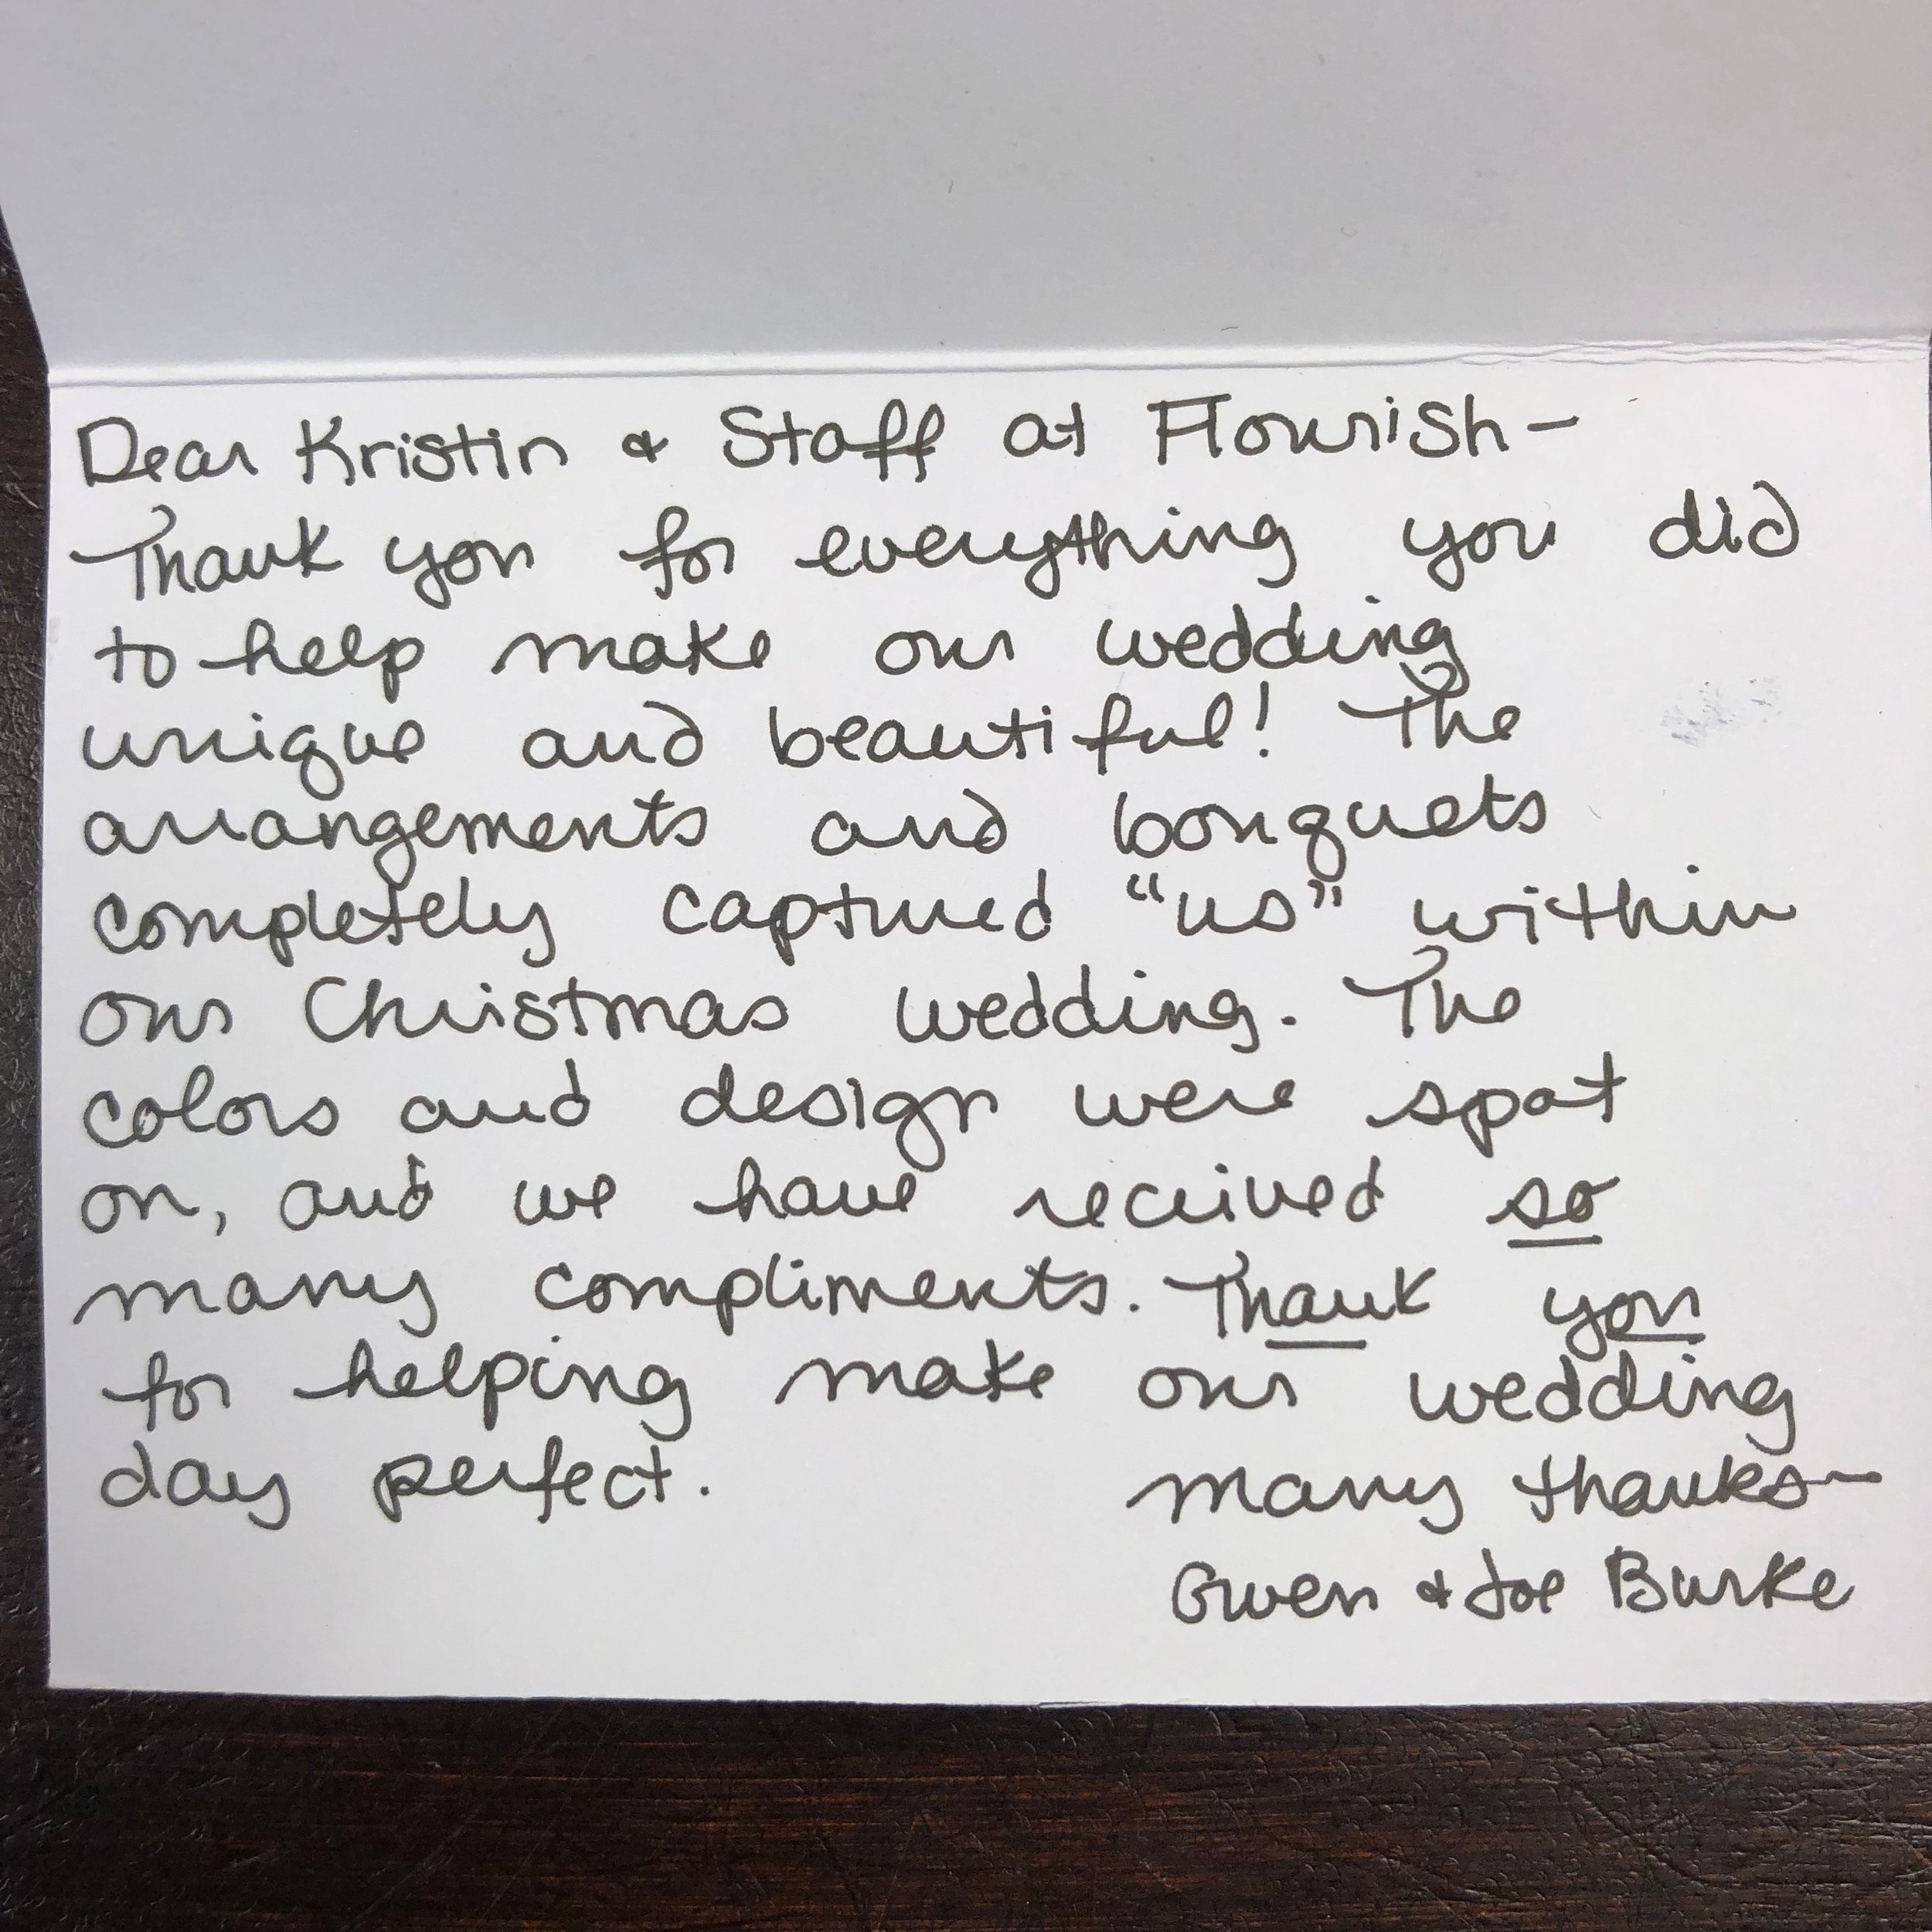 Dear Kristin & Staff at Flourish-
Thank you for everything you did
to help make our wedding
unique and beautiful! The
arrangements and bouquets
completely captured "us" within
our Christmas wedding. The
colors and design were spot
on, and we have received so
many compliments. Thank you
for helping make our wedding
day perfect.
many thanks-
Gwen & Joe Burke